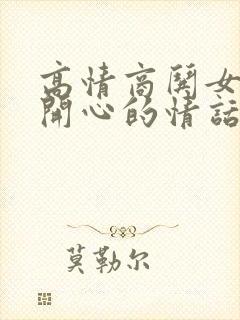 高情商闋女
開心的情話
莫勒尔